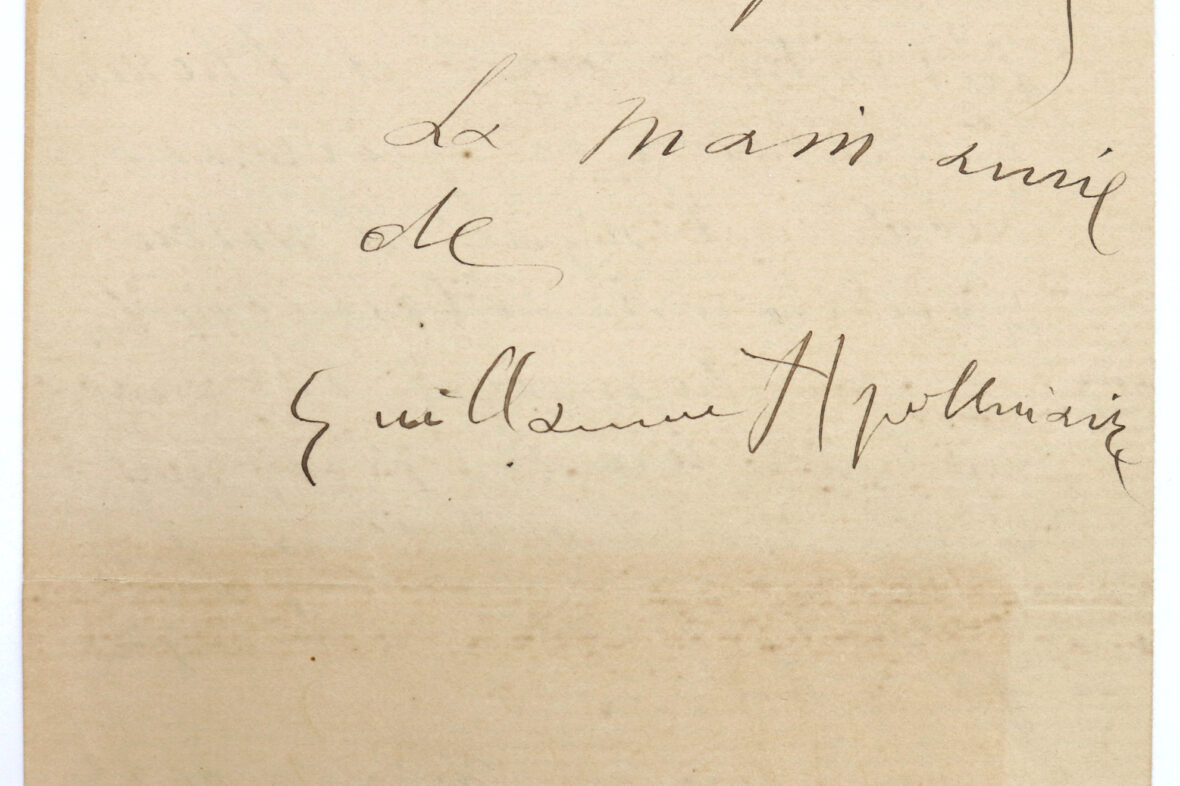 La main amie
de
Guillaume Apollinaire